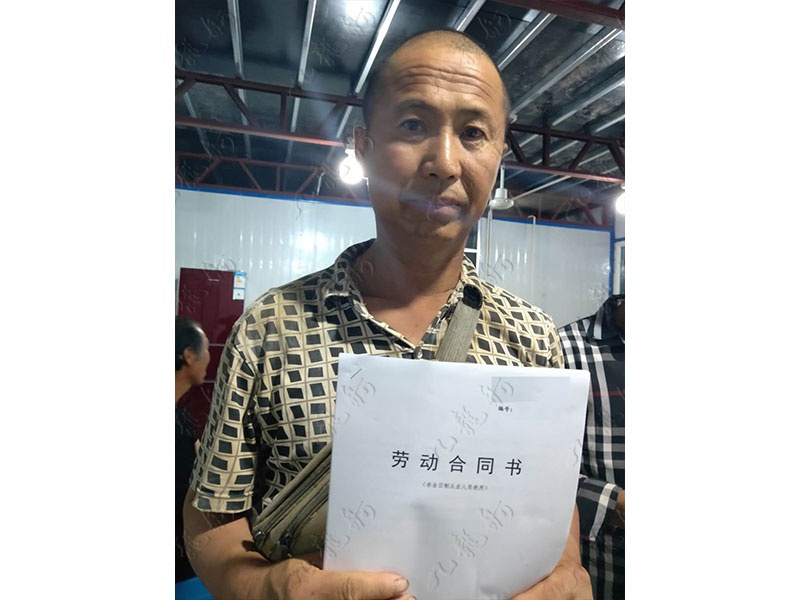 编号:
劳动合同书
(非全日制从业人员使用)